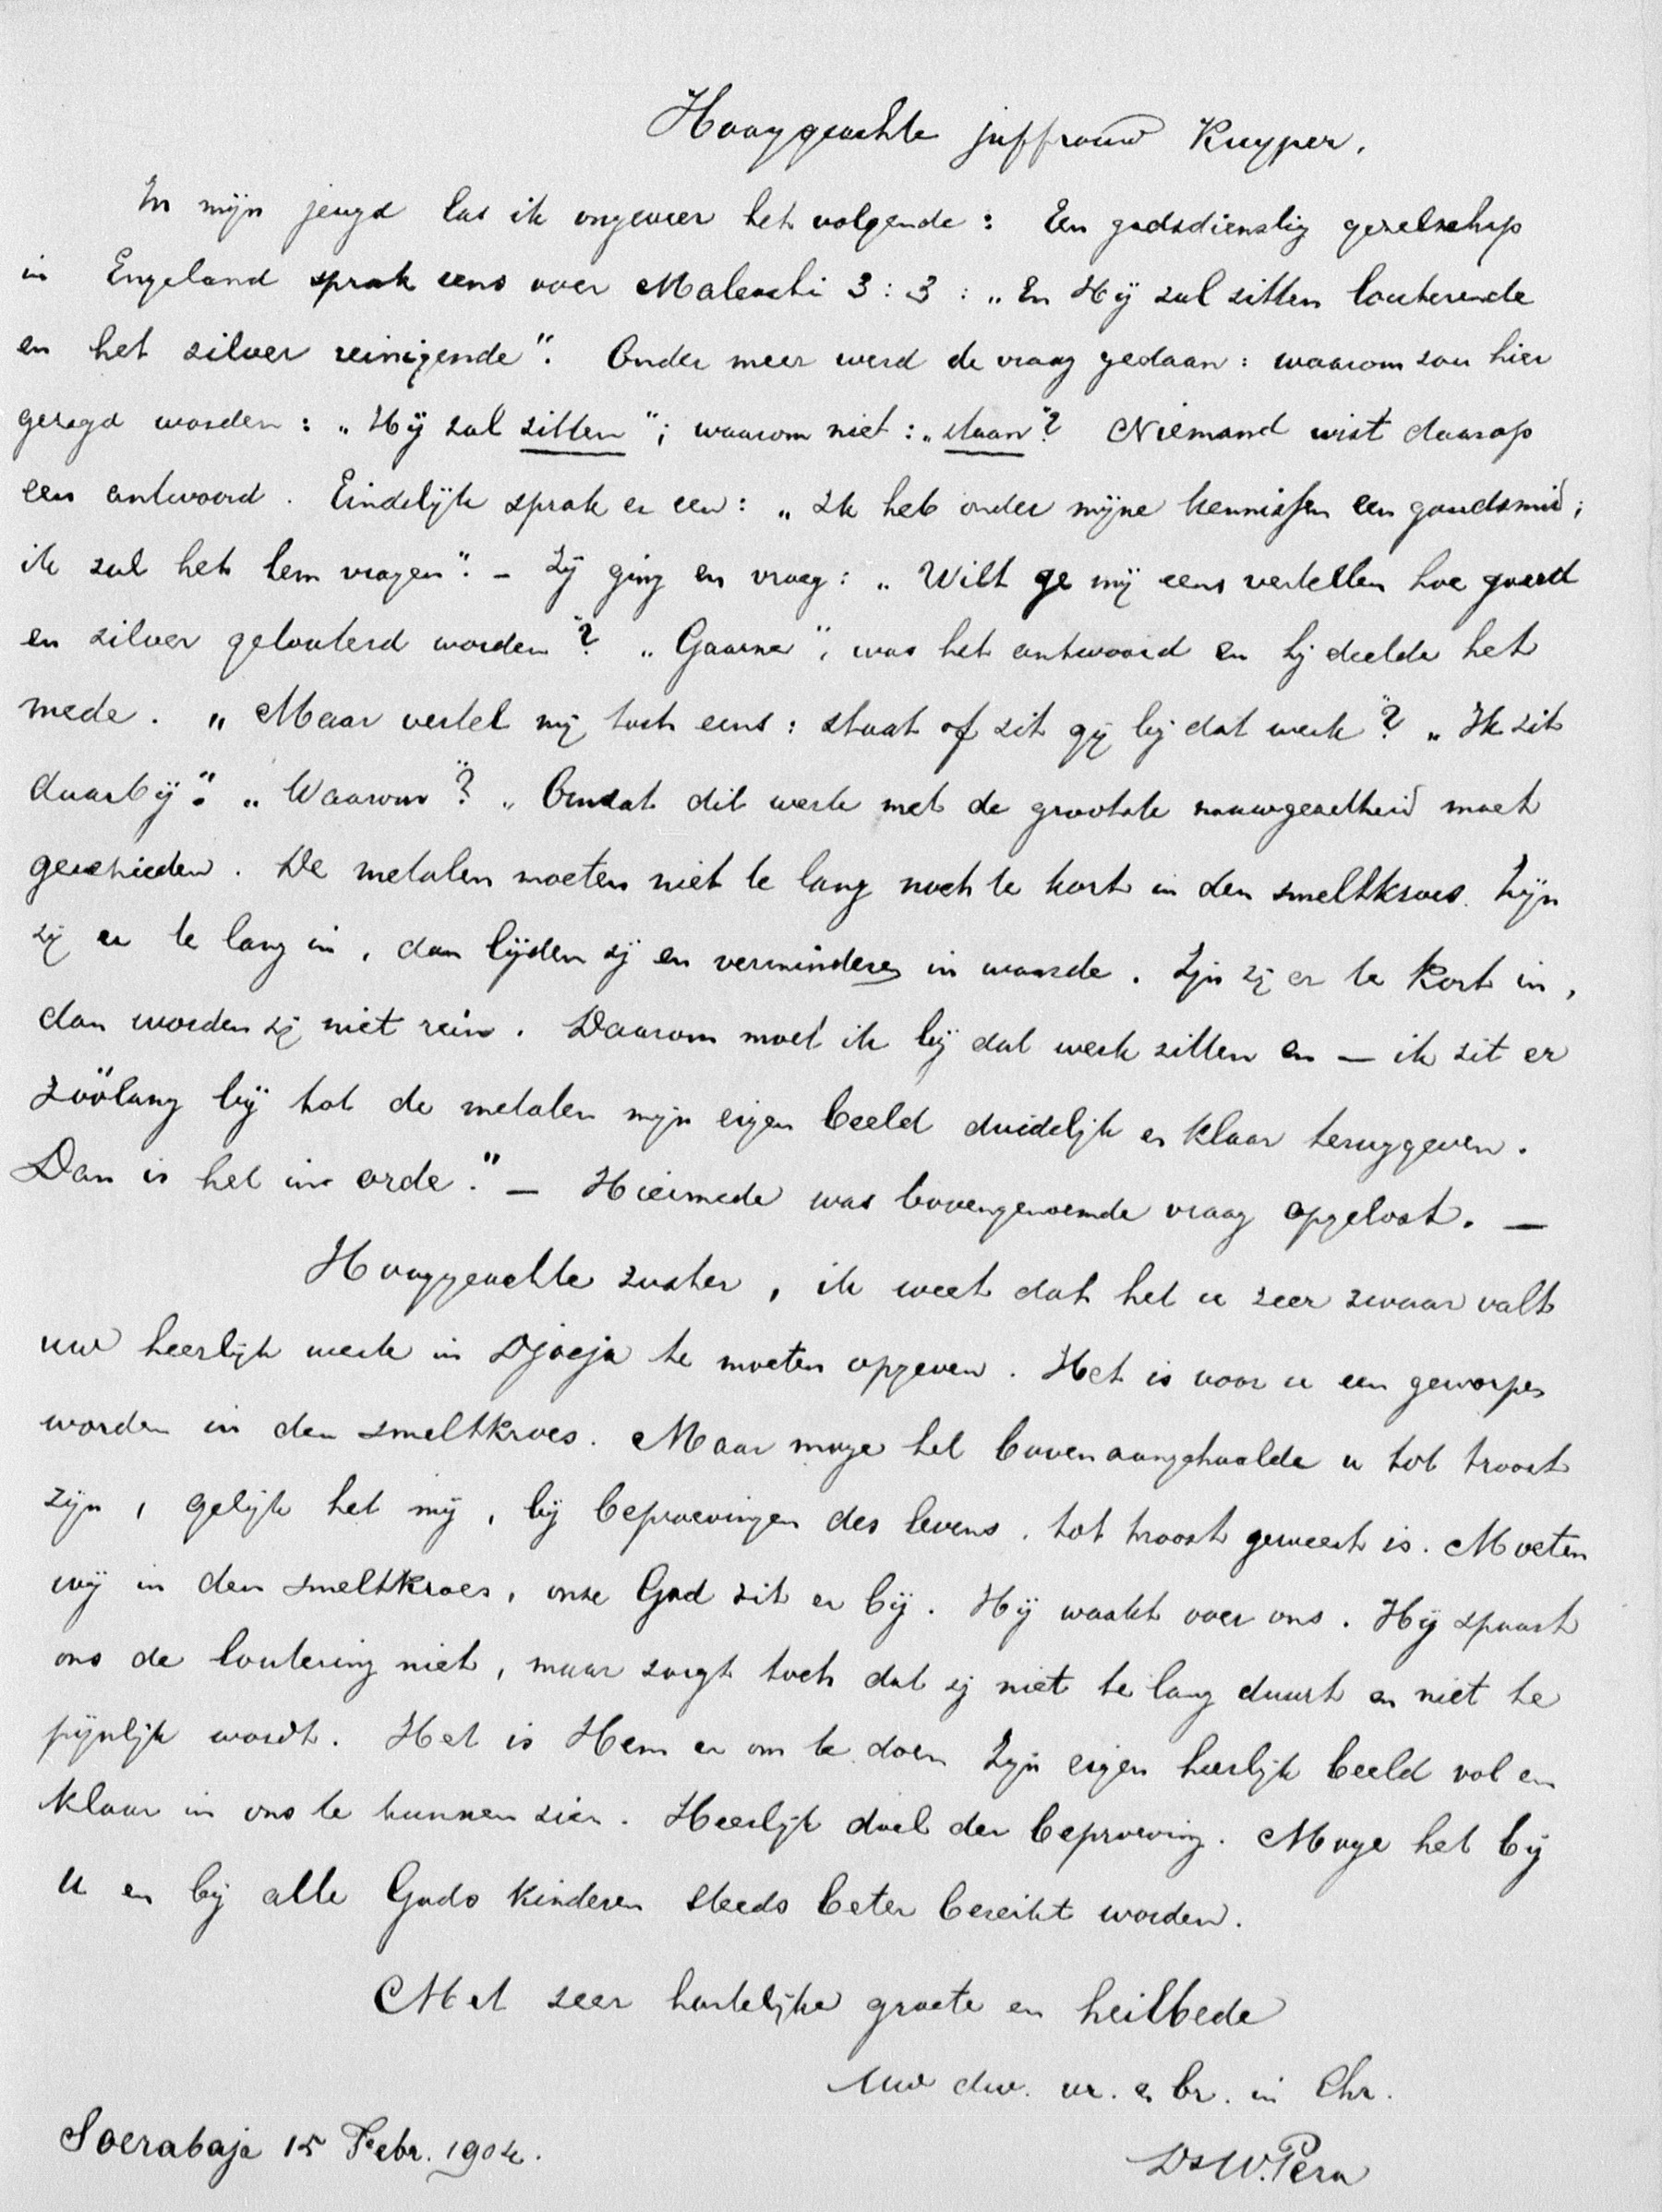 Hooggeachte juffrouw Kuyper.
In mijn jeugd las ik ongeveer het volgende: Een godsdienstig gezelschap
in Engeland sprak eens over Maleachi 3:3: „En Hij zal zitten louterende
en het zilver reinigende". Onder meer werd de vraag gedaan: waarom zou hier
gezegd worden: „Hij zal zitten"; waarom niet: „staan"? Niemand wist daarop
een antwoord. Eindelijk sprak er een: „Ik heb onder mijne kennissen een goudsmid;
ik zal het hem vragen". – Zij ging en vroeg: „Wilt ge mij eens vertellen hoe goud
en zilver gelouterd worden"? „Gaarne", was het antwoord en hij deelde het
mede. „Maar vertel mij toch eens: staat of zit gij bij dat werk"? „Ik zit
daarbij". „Waarom"? „Omdat dit werk met de grootste nauwgezetheid moet
geschieden. De metalen moeten niet te lang noch te kort in den smeltkroes. Zijn
zij er te lang in, dan lijden zij en verminderen in waarde. Zijn zij er te kort in,
dan worden zij niet rein. Daarom moet ik bij dat werk zitten en — ik zit er
zóólang bij tot de metalen mijn eigen beeld duidelijk en klaar teruggeven.
Dan is het in orde." — Hiermede was bovengenoemde vraag opgelost. —
Hooggeachte zuster, ik weet dat het u zeer zwaar valt
uw heerlijk werk in Djocja te moeten opgeven. Het is voor u een geworpen
worden in den smeltkroes. Maar moge het bovenaangehaalde u tot troost
zijn, gelijk het mij, bij beproevingen des levens, tot troost geweest is. Moeten
wij in den smeltkroes, onze God zit er bij. Hij waakt over ons. Hij spaart
ons de loutering niet, maar zorgt toch dat zij niet te lang duurt en niet te
pijnlijk wordt. Het is Hem er om te doen Zijn eigen heerlijk beeld vol en
klaar in ons te kunnen zien. Heerlijk doel der beproeving. Moge het bij
u en bij alle Gods kinderen steeds beter bereikt worden.
Met zeer hartelijke groete en heilbede
Uw dw. vr. en br. in Chr.
Ds W. Pera
Soerabaja 15 Febr. 1904.